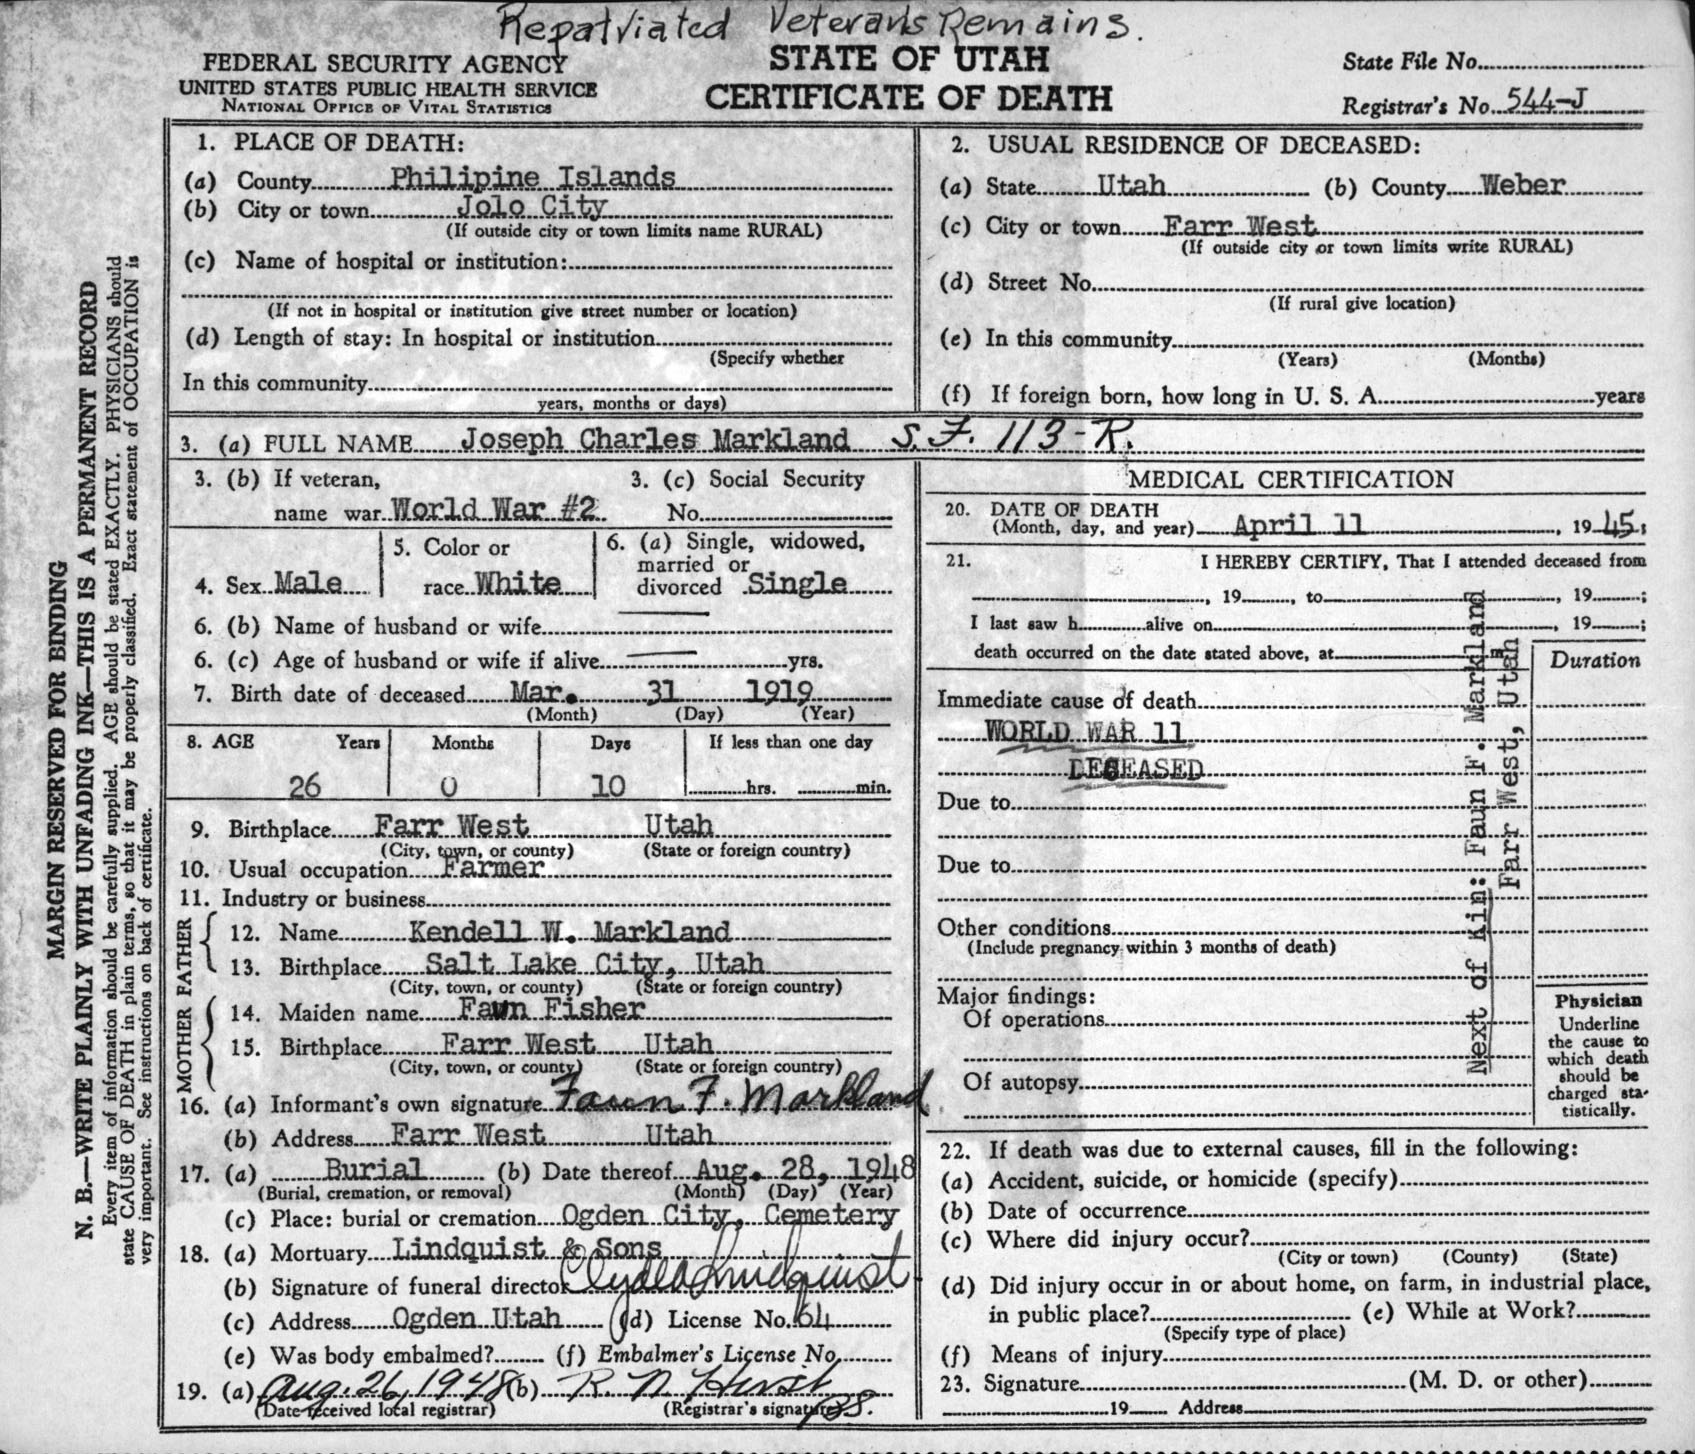 Repatriated Veterans Remains.
FEDERAL SECURITY AGENCY
UNITED STATES PUBLIC HEALTH SERVICE
NATIONAL OFFICE OF VITAL STATISTICS
STATE OF UTAH
CERTIFICATE OF DEATH
State File No.
Registrar's No. 544-J
MARGIN RESERVED FOR BINDING
N. B.—WRITE PLAINLY WITH UNFADING INK—THIS IS A PERMANENT RECORD
Every item of information should be carefully supplied. AGE should be stated EXACTLY. PHYSICIANS should
state CAUSE OF DEATH in plain terms, so that it may be properly classified. Exact statement of OCCUPATION is
very important. See instructions on back of certificate.
1. PLACE OF DEATH:
(a) County Philipine Islands
(b) City or town Jolo City
(If outside city or town limits name RURAL)
(c) Name of hospital or institution:
(If not in hospital or institution give street number or location)
(d) Length of stay: In hospital or institution
(Specify whether
In this community
years, months or days)
2. USUAL RESIDENCE OF DECEASED:
(a) State Utah (b) County Weber
(c) City or town Farr West
(If outside city or town limits write RURAL)
(d) Street No.
(If rural give location)
(e) In this community
(Years) (Months)
(f) If foreign born, how long in U. S. A. years
3. (a) FULL NAME Joseph Charles Markland S.F. 113-R.
3. (b) If veteran, 3. (c) Social Security
name war World War #2 No.
4. Sex Male
5. Color or
race White
6. (a) Single, widowed,
married or
divorced Single
6. (b) Name of husband or wife
6. (c) Age of husband or wife if alive yrs.
7. Birth date of deceased Mar. 31 1919
(Month) (Day) (Year)
8. AGE Years Months Days If less than one day
26 0 10 hrs. min.
9. Birthplace Farr West Utah
(City, town, or county) (State or foreign country)
10. Usual occupation Farmer
11. Industry or business
FATHER
12. Name Kendell W. Markland
13. Birthplace Salt Lake City, Utah
(City, town, or county) (State or foreign country)
MOTHER
14. Maiden name Fawn Fisher
15. Birthplace Farr West Utah
(City, town, or county) (State or foreign country)
16. (a) Informant's own signature Fawn F. Markland
(b) Address Farr West Utah
17. (a) Burial (b) Date thereof Aug. 28, 1948
(Burial, cremation, or removal) (Month) (Day) (Year)
(c) Place: burial or cremation Ogden City, Cemetery
18. (a) Mortuary Lindquist & Sons
(b) Signature of funeral director Clyde Lindquist
(c) Address Ogden Utah (d) License No. 64
(e) Was body embalmed? (f) Embalmer's License No.
19. (a) Aug. 26, 1948 (b) R. N. Hirst
(Date received local registrar) (Registrar's signature)
MEDICAL CERTIFICATION
20. DATE OF DEATH
(Month, day, and year) April 11, 1945;
21. I HEREBY CERTIFY, That I attended deceased from
, 19 , to , 19 ;
I last saw h alive on , 19 ;
death occurred on the date stated above, at m.
Duration
Immediate cause of death
WORLD WAR 11
DECEASED
Due to
Due to
Other conditions
(Include pregnancy within 3 months of death)
Major findings:
Of operations
Of autopsy
Physician
Underline
the cause to
which death
should be
charged sta-
tistically.
Next of Kin: Faun F. Markland
Farr West, Utah
22. If death was due to external causes, fill in the following:
(a) Accident, suicide, or homicide (specify)
(b) Date of occurrence
(c) Where did injury occur?
(City or town) (County) (State)
(d) Did injury occur in or about home, on farm, in industrial place,
in public place? (e) While at Work?
(Specify type of place)
(f) Means of injury
23. Signature (M. D. or other)
19 Address